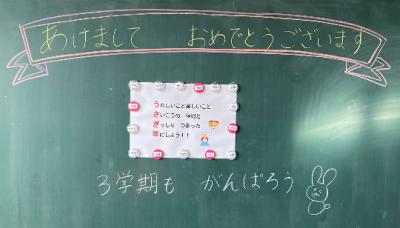 あけまして おめでとうございます
うれしいこと楽しいこと
さいこうの 仲間と
ぎっしり つまった
年にしよう!!
3学期も がんばろう